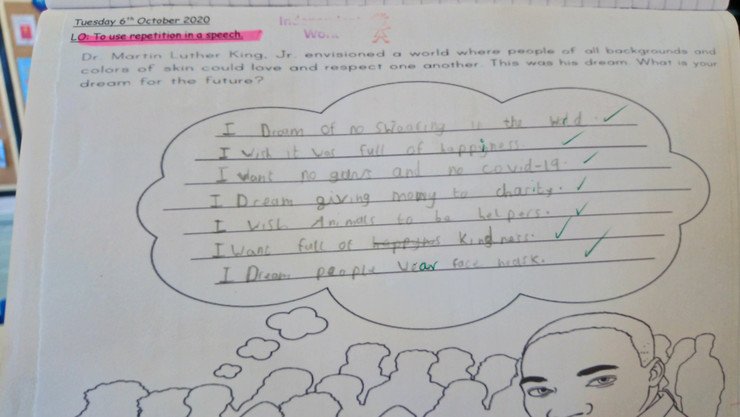 Tuesday 6th October 2020
Independent
Work
LO: To use repetition in a speech.
Dr. Martin Luther King, Jr. envisioned a world where people of all backgrounds and
colors of skin could love and respect one another. This was his dream. What is your
dream for the future?
I Dream of no swearing in the
I wish it was full of happyness.
I want no and no covid-19.
I Dream giving mony to charity.
I wish Animals to be helpers.
I Want full of happynes kindness.
I Dream people wear face